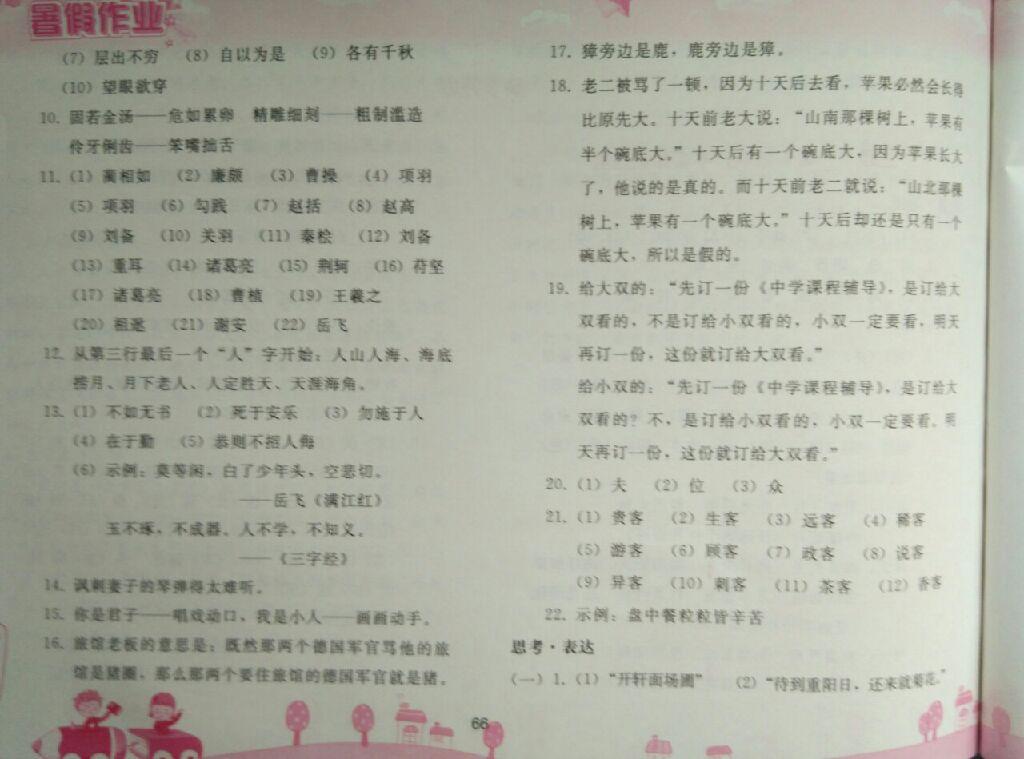 暑假作业
(7) 层出不穷 (8) 自以为是 (9) 各有千秋
(10) 望眼欲穿
10. 固若金汤——危如累卵 精雕细刻——粗制滥造
伶牙俐齿——笨嘴拙舌
11. (1) 蔺相如 (2) 廉颇 (3) 曹操 (4) 项羽
(5) 项羽 (6) 勾践 (7) 赵括 (8) 赵高
(9) 刘备 (10) 关羽 (11) 秦桧 (12) 刘备
(13) 重耳 (14) 诸葛亮 (15) 荆轲 (16) 苻坚
(17) 诸葛亮 (18) 曹植 (19) 王羲之
(20) 祖逖 (21) 谢安 (22) 岳飞
12. 从第三行最后一个“人”字开始：人山人海、海底
捞月、月下老人、人定胜天、天涯海角。
13. (1) 不如无书 (2) 死于安乐 (3) 勿施于人
(4) 在于勤 (5) 恭则不招人侮
(6) 示例：莫等闲，白了少年头，空悲切。
——岳飞《满江红》
玉不琢，不成器。人不学，不知义。
——《三字经》
14. 讽刺妻子的琴弹得太难听。
15. 你是君子——唱戏动口，我是小人——画画动手。
16. 旅馆老板的意思是：既然那两个德国军官骂他的旅
馆是猪圈，那么那两个要住旅馆的德国军官就是猪。
17. 獐旁边是鹿，鹿旁边是獐。
18. 老二被骂了一顿，因为十天后去看，苹果必然会长得
比原先大。十天前老大说：“山南那棵树上，苹果有
半个碗底大。”十天后有一个碗底大，因为苹果长大
了，他说的是真的。而十天前老二就说：“山北那棵
树上，苹果有一个碗底大。”十天后却还是只有一个
碗底大，所以是假的。
19. 给大双的：“先订一份《中学课程辅导》，是订给大
双看的，不是订给小双看的，小双一定要看，明天
再订一份，这份就订给大双看。”
给小双的：“先订一份《中学课程辅导》，是订给大
双看的？不，是订给小双看的，小双一定要看。明
天再订一份，这份就订给大双看。”
20. (1) 夫 (2) 位 (3) 众
21. (1) 贵客 (2) 生客 (3) 远客 (4) 稀客
(5) 游客 (6) 顾客 (7) 政客 (8) 说客
(9) 异客 (10) 刺客 (11) 茶客 (12) 香客
22. 示例：盘中餐粒粒皆辛苦
思考·表达
(一) 1. (1) “开轩面场圃” (2) “待到重阳日，还来就菊花。”
66